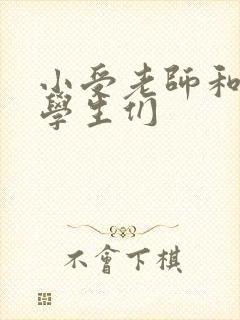 小受老師和
學生们
不會下棋